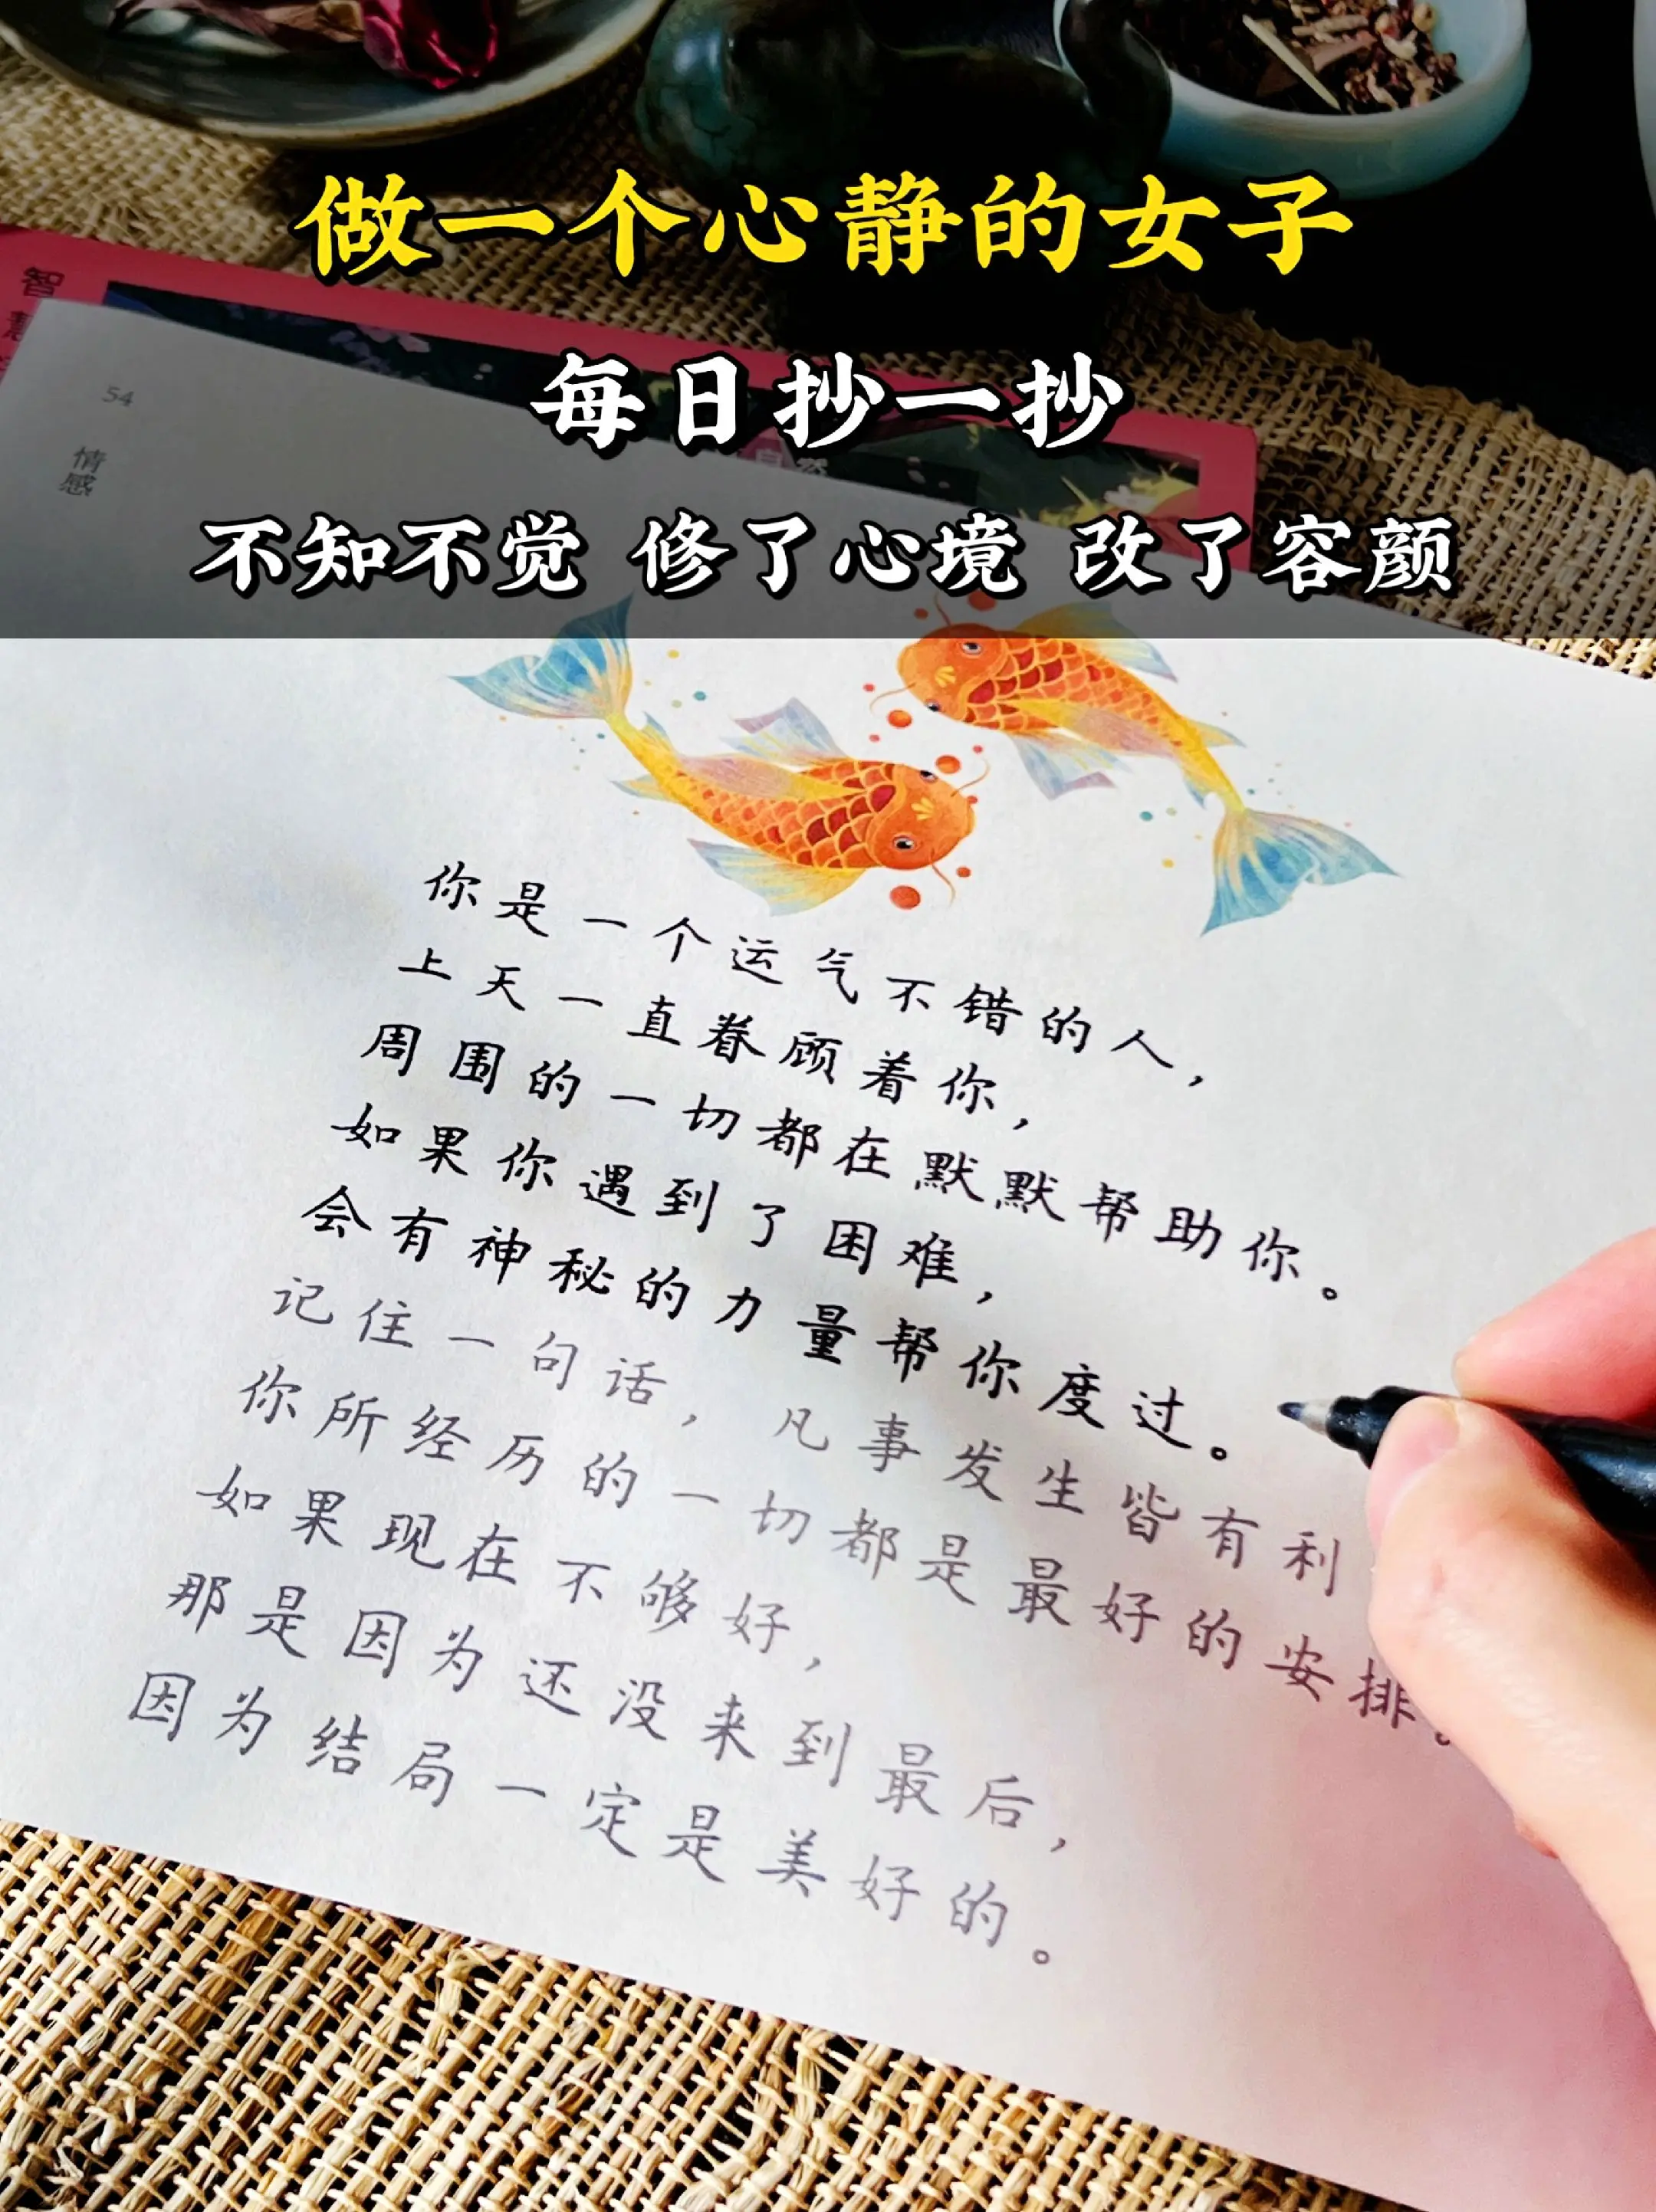 做一个心静的女子
每日抄一抄
不知不觉 修了心境 改了容颜
智
慧
54
情感
你是一个运气不错的人，
上天一直眷顾着你，
周围的一切都在默默帮助你。
如果你遇到了困难，
会有神秘的力量帮你度过。
记住一句话，凡事发生皆有利
你所经历的一切都是最好的安排。
如果现在不够好，
那是因为还没来到最后，
因为结局一定是美好的。